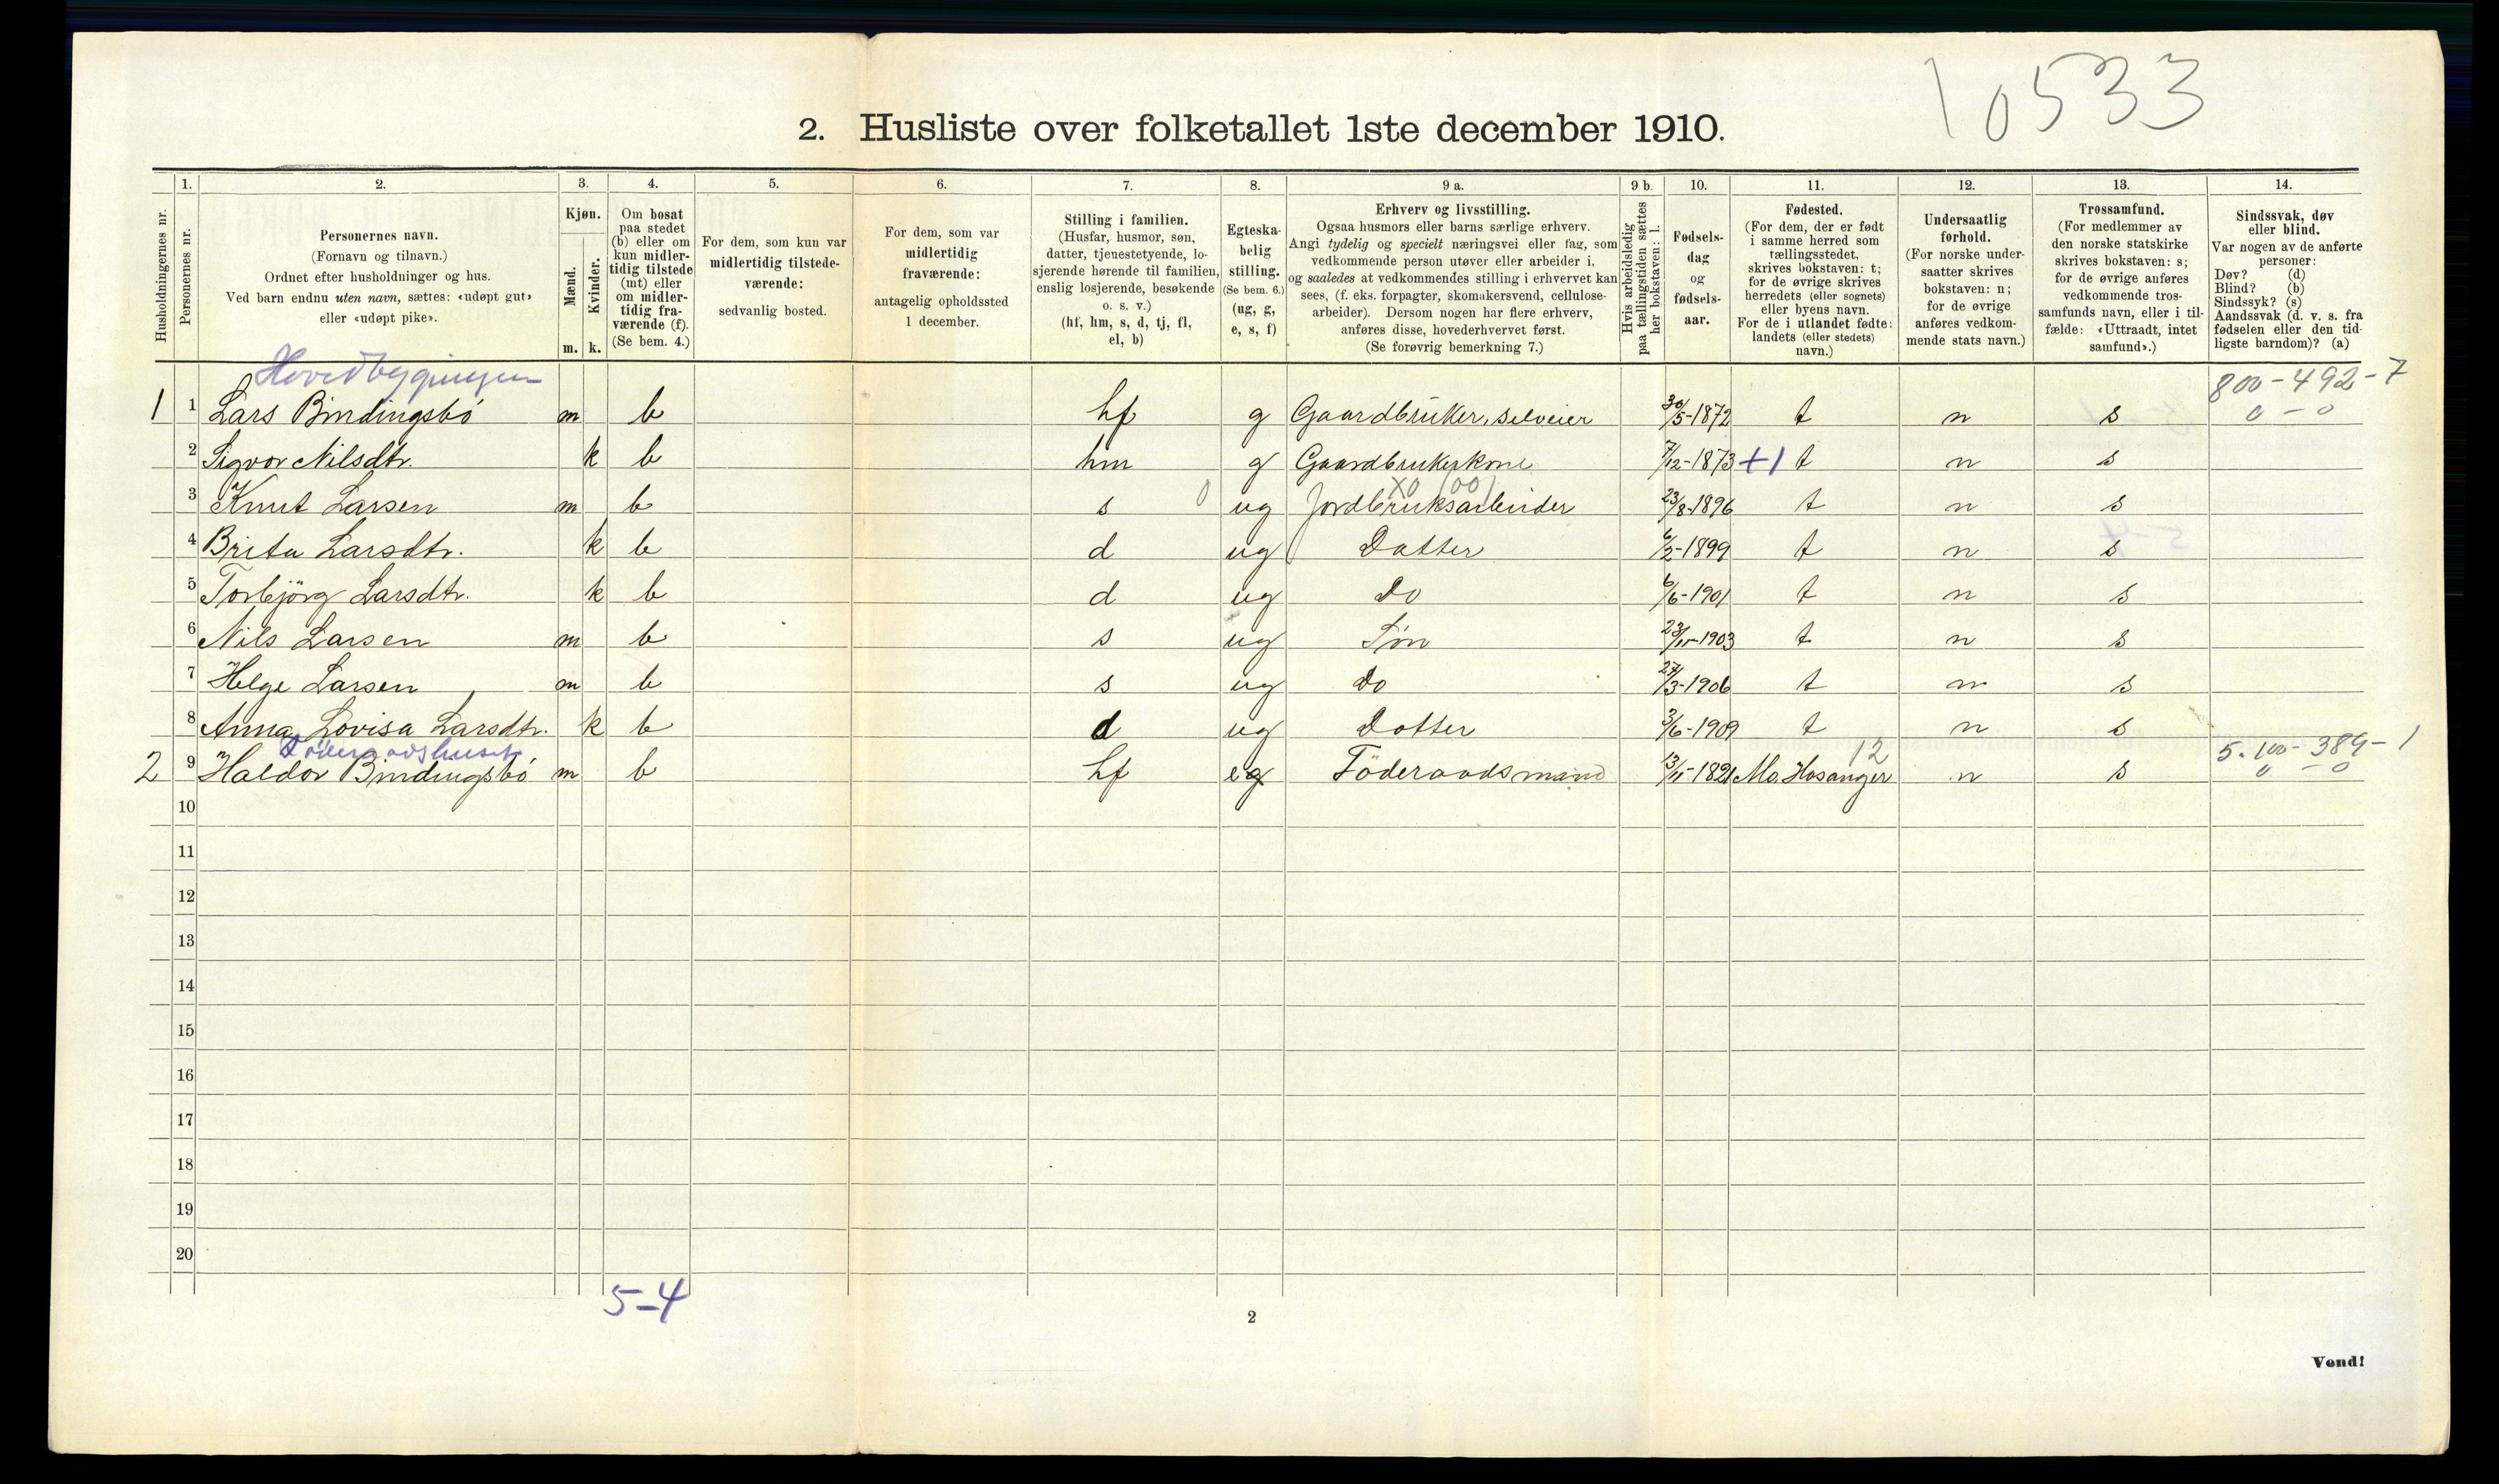 10533
2. Husliste over folketallet 1ste december 1910.
Husholdningernes nr.
1.
Personernes nr.
2.
Personernes navn.
(Fornavn og tilnavn.)
Ordnet efter husholdninger og hus.
Ved barn endnu uten navn, sættes: «udøpt gut»
eller «udøpt pike».
3.
Kjøn.
Mænd.
Kvinder.
m. k.
4.
Om bosat
paa stedet
(b) eller om
kun midler-
tidig tilstede
(mt) eller
om midler-
tidig fra-
værende (f).
(Se bem. 4.)
5.
For dem, som kun var
midlertidig tilstede-
værende:
sedvanlig bosted.
6.
For dem, som var
midlertidig
fraværende:
antagelig opholdssted
1 december.
7.
Stilling i familien.
(Husfar, husmor, søn,
datter, tjenestetyende, lo-
sjerende hørende til familien,
enslig losjerende, besøkende
o. s. v.)
(hf, hm, s, d, tj, fl,
el, b)
8.
Egteska-
belig
stilling.
(Se bem. 6.)
(ug, g,
e, s, f)
9 a.
Erhverv og livsstilling.
Ogsaa husmors eller barns særlige erhverv.
Angi tydelig og specielt næringsvei eller fag, som
vedkommende person utøver eller arbeider i,
og saaledes at vedkommendes stilling i erhvervet kan
sees, (f. eks. forpagter, skomakersvend, cellulose-
arbeider). Dersom nogen har flere erhverv,
anføres disse, hovederhvervet først.
(Se forøvrig bemerkning 7.)
9 b.
Hvis arbeidsledig
paa tællingstiden sættes
her bokstaven: l.
10.
Fødsels-
dag
og
fødsels-
aar.
11.
Fødested.
(For dem, der er født
i samme herred som
tællingsstedet,
skrives bokstaven: t;
for de øvrige skrives
herredets (eller sognets)
eller byens navn.
For de i utlandet fødte:
landets (eller stedets)
navn.)
12.
Undersaatlig
forhold.
(For norske under-
saatter skrives
bokstaven: n;
for de øvrige
anføres vedkom-
mende stats navn.)
13.
Trossamfund.
(For medlemmer av
den norske statskirke
skrives bokstaven: s;
for de øvrige anføres
vedkommende tros-
samfunds navn, eller i til-
fælde: «Uttraadt, intet
samfund».)
14.
Sindssvak, døv
eller blind.
Var nogen av de anførte
personer:
Døv? (d)
Blind? (b)
Sindssyk? (s)
Aandssvak (d. v. s. fra
fødselen eller den tid-
ligste barndom)? (a)
Hovedbygningen
800-492-7
0-0
1 1 Lars Bindingsbó m b hf g Gaardbruker, selveier 30/5-1872 t n s
2 Sigvor Nilsdtr. k b hm g Gaardbrukerkone 7/12-1873 +1 t n s
0 X0 (00)
3 Knut Larsen m b s ug Jordbruksarbeider 23/8-1896 t n s
4 Brita Larsdtr. k b d ug Datter 6/2-1899 t n s
5 Torbjörg Larsdtr. k b d ug Do 6/6-1901 t n s
6 Nils Larsen m b s ug Søn 23/11-1903 t n s
7 Helge Larsen m b s ug Do 27/3-1906 t n s
8 Anna Lovisa Larsdtr. k b d ug Dotter 3/6-1909 t n s
Föderaadshuset
12
5.100-389-1
0-0
2 9 Haldor Bindingsbó m b hf eg Föderaadsmand 13/11-1821 Mo. Hosanger n s
10
11
12
13
14
15
16
17
18
19
20
5-4
2
Vend!